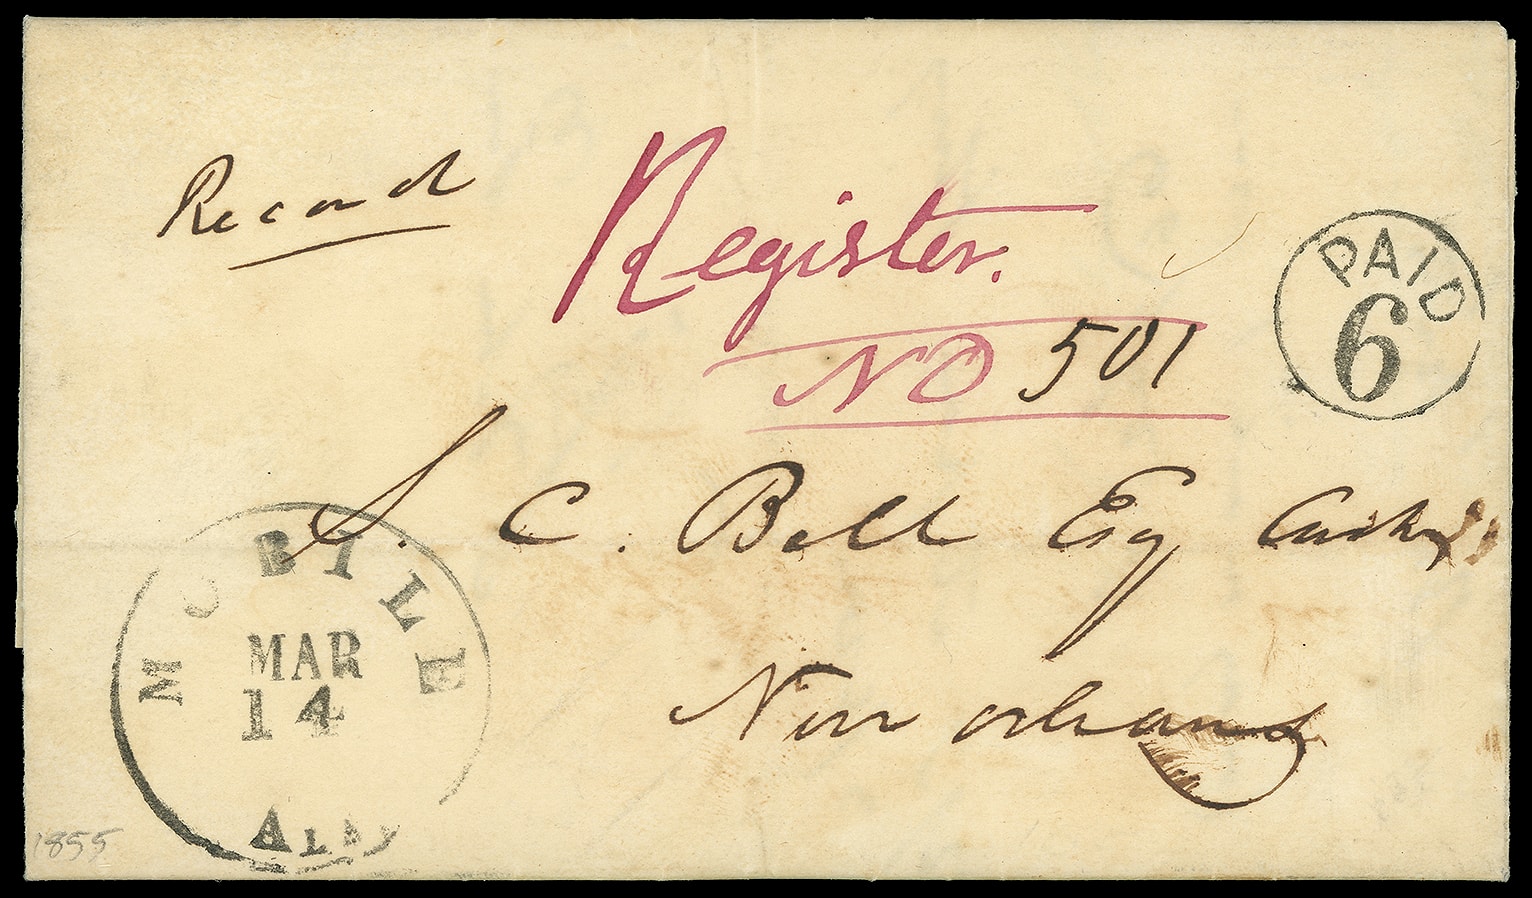 Record
Register.
No 501
PAID
6
S. C. Bell Esq Cashr
New Orleans
MOBILE
MAR
14
ALBA
1855